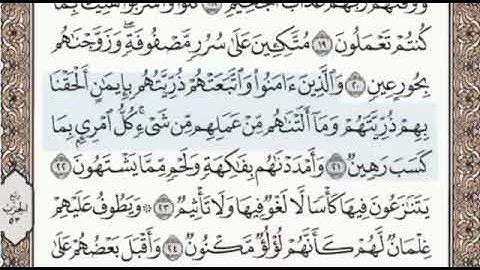 وَوَقَىٰهُمْ رَبُّهُمْ عَذَابَ ٱلْجَحِيمِ ١٨ كُلُوا۟ وَٱشْرَبُوا۟ هَنِيٓـًٔۢا بِمَا
كُنتُمْ تَعْمَلُونَ ١٩ مُتَّكِـِٔينَ عَلَىٰ سُرُرٍ مَّصْفُوفَةٍ ۖ وَزَوَّجْنَٰهُم
بِحُورٍ عِينٍ ٢٠ وَٱلَّذِينَ ءَامَنُوا۟ وَٱتَّبَعَتْهُمْ ذُرِّيَّتُهُم بِإِيمَٰنٍ أَلْحَقْنَا
بِهِمْ ذُرِّيَّتَهُمْ وَمَآ أَلَتْنَٰهُم مِّنْ عَمَلِهِم مِّن شَىْءٍ ۚ كُلُّ ٱمْرِئٍۭ بِمَا
كَسَبَ رَهِينٌ ٢١ وَأَمْدَدْنَٰهُم بِفَٰكِهَةٍ وَلَحْمٍ مِّمَّا يَشْتَهُونَ ٢٢
يَتَنَٰزَعُونَ فِيهَا كَأْسًا لَّا لَغْوٌ فِيهَا وَلَا تَأْثِيمٌ ٢٣ ۞ وَيَطُوفُ عَلَيْهِمْ
غِلْمَانٌ لَّهُمْ كَأَنَّهُمْ لُؤْلُؤٌ مَّكْنُونٌ ٢٤ وَأَقْبَلَ بَعْضُهُمْ عَلَىٰ
ربع
الحزب
٥٣